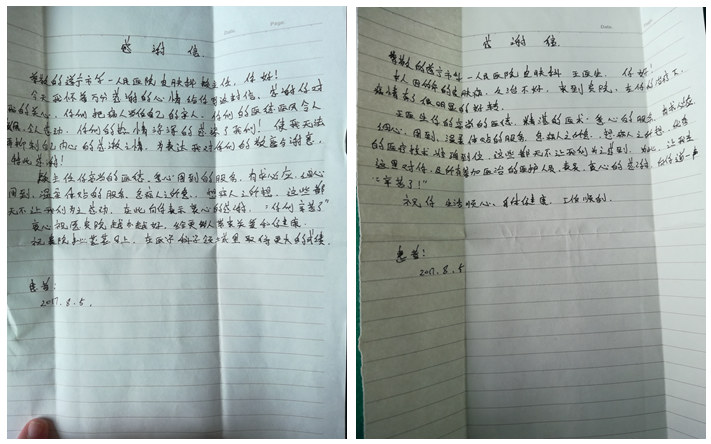 感谢信
尊敬的遂宁市第一人民医院皮肤科 主任，你好！
今天我怀着万分感谢的心情给你写这封信，感谢你对
我的关心，你们把病人当自己的亲人，你们的医德医风令人
令人感动，你们的热情深深的感染了我们！使我无法
抑制到自己内心的感激之情，为表达我对你们的敬意与谢意，
特此感谢！
主任你高尚的医德，热心周到的服务，有求必应，细心
周到，温馨体贴的服务，急病人之所急，想病人之所想，这些都
无不让我们为之感动，在此向你表示衷心的感谢，“你们辛苦了”
衷心祝愿贵院越办越好，给更多人带来关爱和健康。
祝贵院 蒸蒸日上，在医学科学领域里取得更大的成绩
患者：
2017.8.5.
感谢信
尊敬的遂宁市第一人民医院皮肤科 王医生，你好！
本人因 的皮肤病，久治不好，来到贵院，在你的治疗下，
病情有了很明显的好转。
王医生你高尚的医德，精湛的医术，热心的服务，有求必应
细心，周到，温馨体贴的服务，急病人之所急，想病人之所想，
的医疗技术 到位，这些都无不让我们为之感到 ，为此，让我在
这里对你，及所有参加医治的医护人员，表示，衷心的感谢，给你道一声
“辛苦了！”
祝你 生活顺心、身体健康、工作顺利。
患者：
2017.8.5